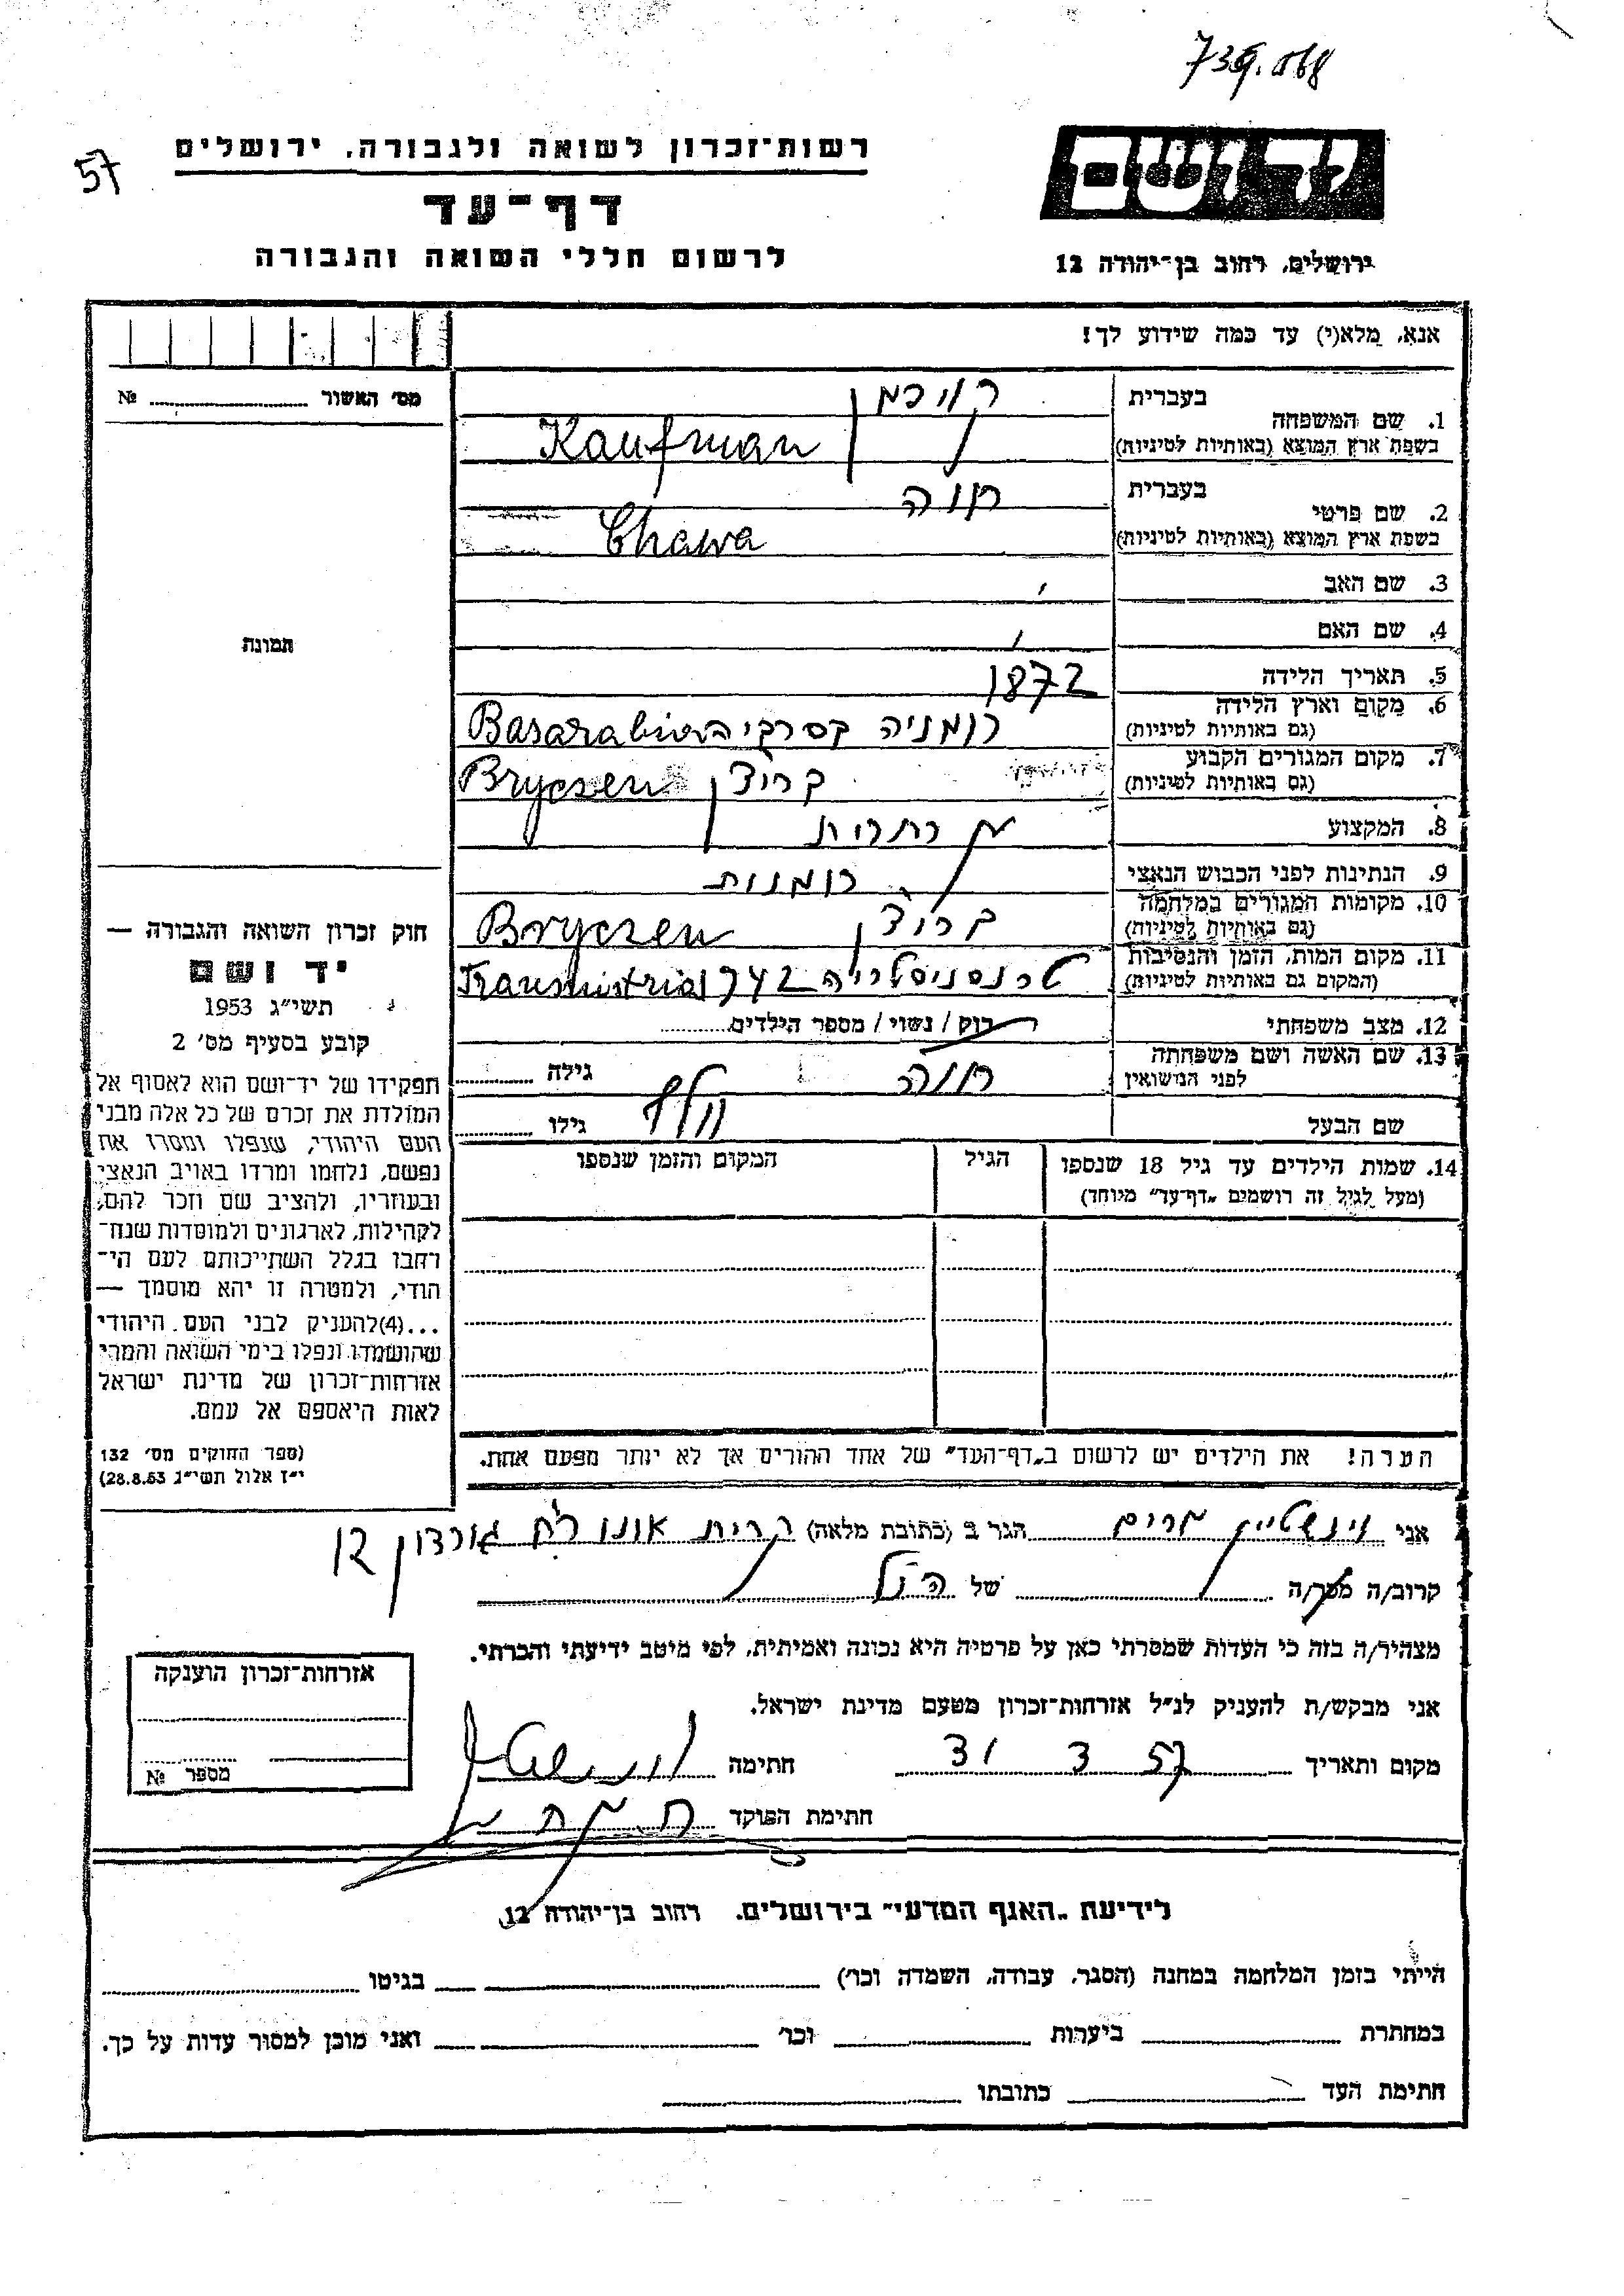 739.068
57
רשות־זכרון לשואה ולגבורה, ירושלים
דף־עד
לרשום חללי השואה והגבורה
יד ושם
ירושלים, רחוב בן־יהודה 12
אנא, מלא(י) עד כמה שידוע לך!
מס׳ האשור № 
1. שם המשפחה בעברית קויפמן
בשפת ארץ המוצא (באותיות לטיניות) Kaufman
2. שם פרטי בעברית חוה
בשפת ארץ המוצא (באותיות לטיניות) Chawa
3. שם האב
4. שם האם
תמונה
5. תאריך הלידה 1872
6. מקום וארץ הלידה רומניה Basarabia
(גם באותיות לטיניות)
7. מקום המגורים הקבוע בריצ'ן Bryczen
(גם באותיות לטיניות)
8. המקצוע
9. הנתינות לפני הכבוש הנאצי רומנית
10. מקומות המגורים במלחמה בריצ'ן Bryczen
(גם באותיות לטיניות)
11. מקום המות, הזמן והנסיבות טרנסניסטריה 1942 Transnistria
(המקום גם באותיות לטיניות)
12. מצב משפחתי רוק / נשוי / מספר הילדים
13. שם האשה ושם משפחתה חוה גילה
לפני הנישואין
שם הבעל וולף גילו
14. שמות הילדים עד גיל 18 שנספו הגיל המקום והזמן שנספו
(מעל לגיל זה רושמים „דף־עד״ מיוחד)
חוק זכרון השואה והגבורה —
יד ושם
תשי״ג 1953
קובע בסעיף מס׳ 2
תפקידו של יד־ושם הוא לאסוף אל
המולדת את זכרם של כל אלה מבני
העם היהודי, שנפלו ומסרו את
נפשם, נלחמו ומרדו באויב הנאצי
ובעוזריו, ולהציב שם וזכר להם,
לקהילות, לארגונים ולמוסדות שנח־
רבו בגלל השתייכותם לעם הי־
הודי, ולמטרה זו יהא מוסמך —
...(4)להעניק לבני העם היהודי
שהושמדו ונפלו בימי השואה והמרי
אזרחות־זכרון של מדינת ישראל
לאות היאספם אל עמם.
(ספר החוקים מס׳ 132
י״ז אלול תשי״ג 28.8.53)
הערה! את הילדים יש לרשום ב„דף־העד״ של אחד ההורים אך לא יותר מפעם אחת.
אני וינשטיין מרים הגר ב (כתובת מלאה) קרית אונו רח גורדון 12
קרוב/ה מכר/ה של הנ"ל
מצהיר/ה בזה כי העדות שמסרתי כאן על פרטיה היא נכונה ואמיתית, לפי מיטב ידיעתי והכרתי.
אני מבקש/ת להעניק לנ״ל אזרחות־זכרון מטעם מדינת ישראל.
מקום ותאריך 31 3 57 חתימה
חתימת הפוקד
אזרחות־זכרון הוענקה
מספר №
לידיעת „האגף המדעי״ בירושלים. רחוב בן־יהודה 12.
הייתי בזמן המלחמה במחנה (הסגר, עבודה, השמדה וכו׳) בגיטו
במחתרת ביערות וכו׳ ואני מוכן למסור עדות על כך.
חתימת העד כתובתו